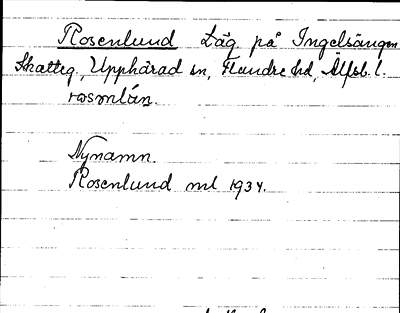 Rosenlund Läg. på Ingelsängen
Skatteg, Upphärad sn, Flundre hd, Älfsb. l.
rosmlán.
Nynamn.
Rosenlund ml 1934.